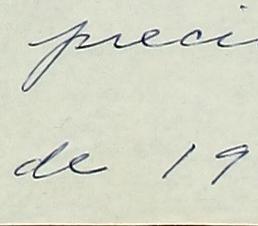 preci
de 19